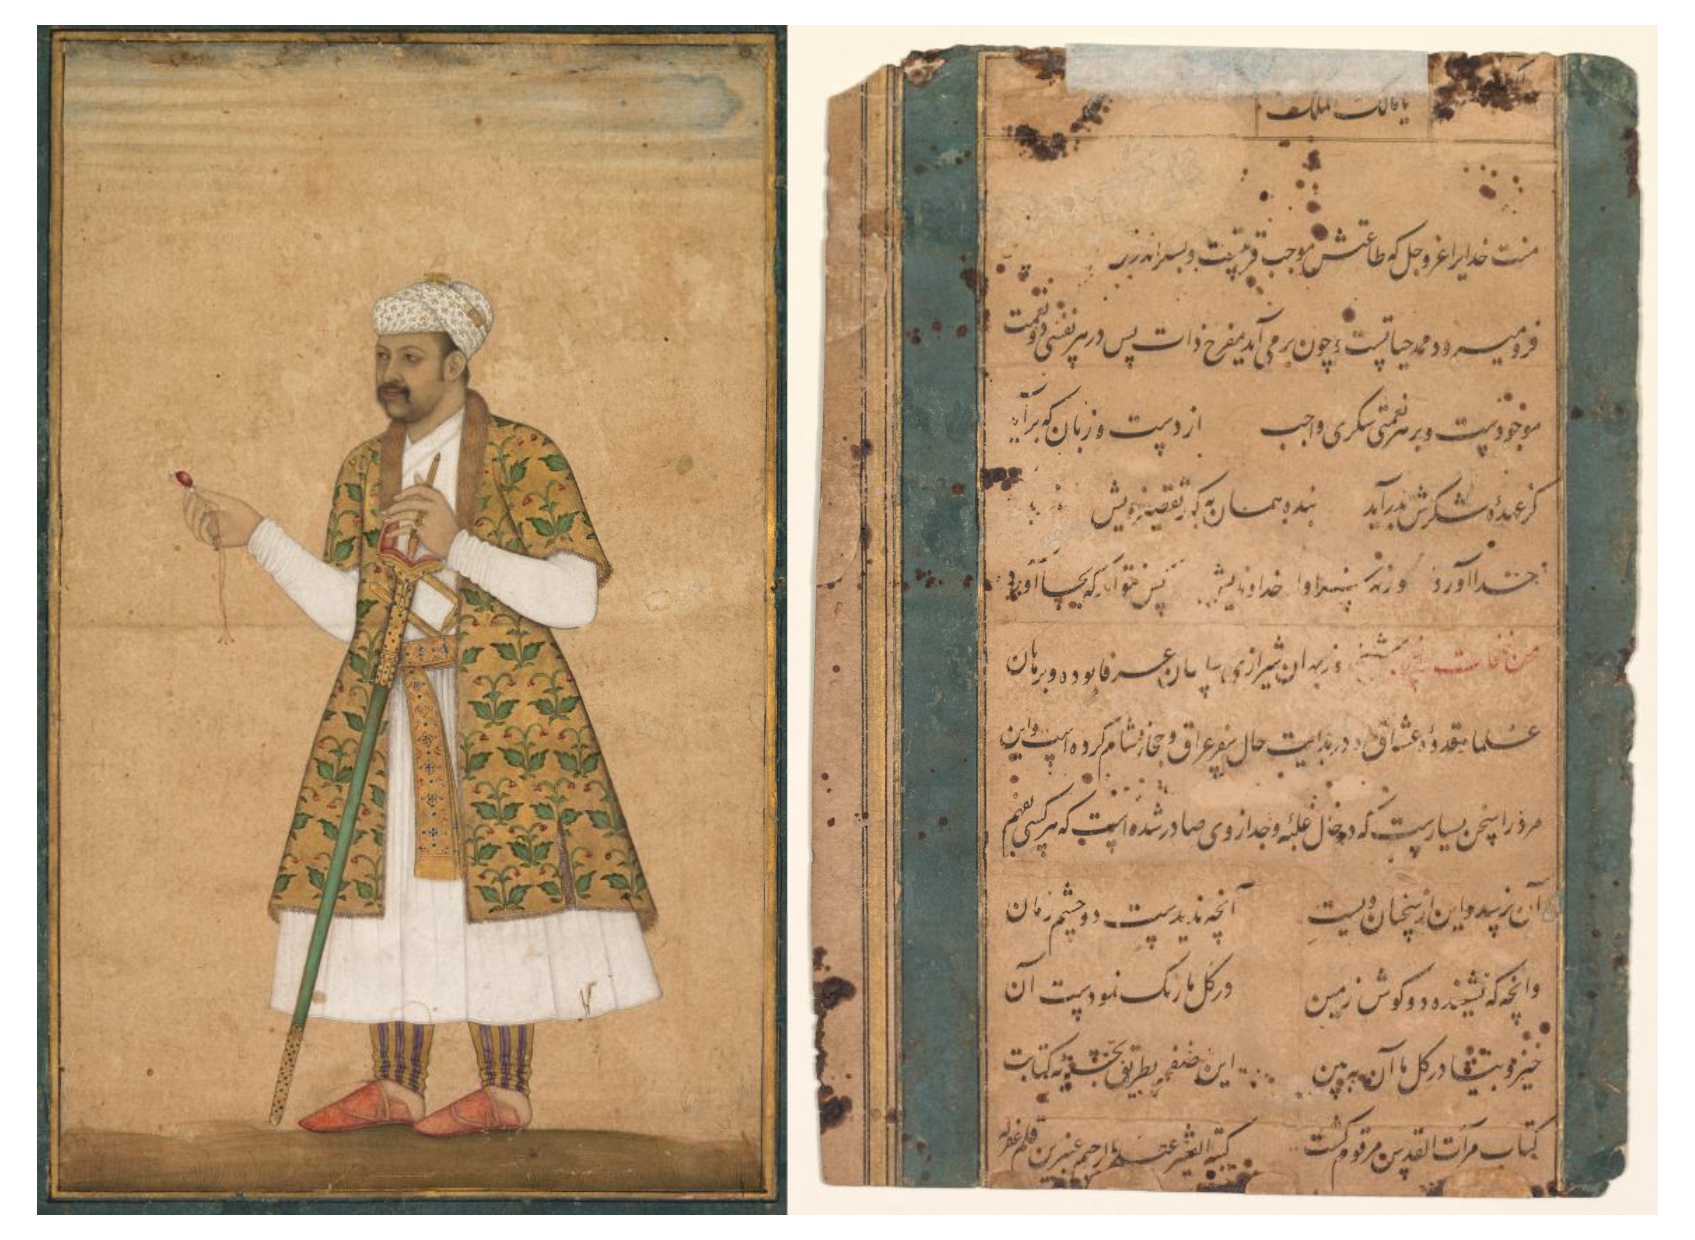 یا مالک الملک
منت خدایرا عز و جل که طاعتش موجب قربتست و بشکر اندرش
فرو میرود ممد حیاتست و چون بر می آید مفرح ذات پس در هر نفسی دو نعمت
موجودست و بر هر نعمتی شکری واجب از دست و زبان که برآید
کز عهده شکرش بدر آید بنده همان به که ز تقصیر خویش
خدا آورد ورنه سزاوار خداوندیش کس نتواند که بجا آورد
شیخ روزبهان شیرازی سلطان عرفا بوده و برهان
علما و قدوه عشاق در بدایت حال سفر عراق و حجاز و شام کرده است و این
مرد را سخن بسیارست که در حال غلبه وجد از وی صادر شده است که هر کسی بفهم
آن نرسد و این از سخنان ویست آنچه ندیدست دو چشم زمان
وانچه که نشنیده دو گوش زمین در گل ما رنگ نمودست آن
خیز و بیا در گل ما آن ببین این صفحه بطریق کتابت
کتاب مرآت القدس مرقوم گشت کتبه عبد الرحیم عنبرین قلم غفرله